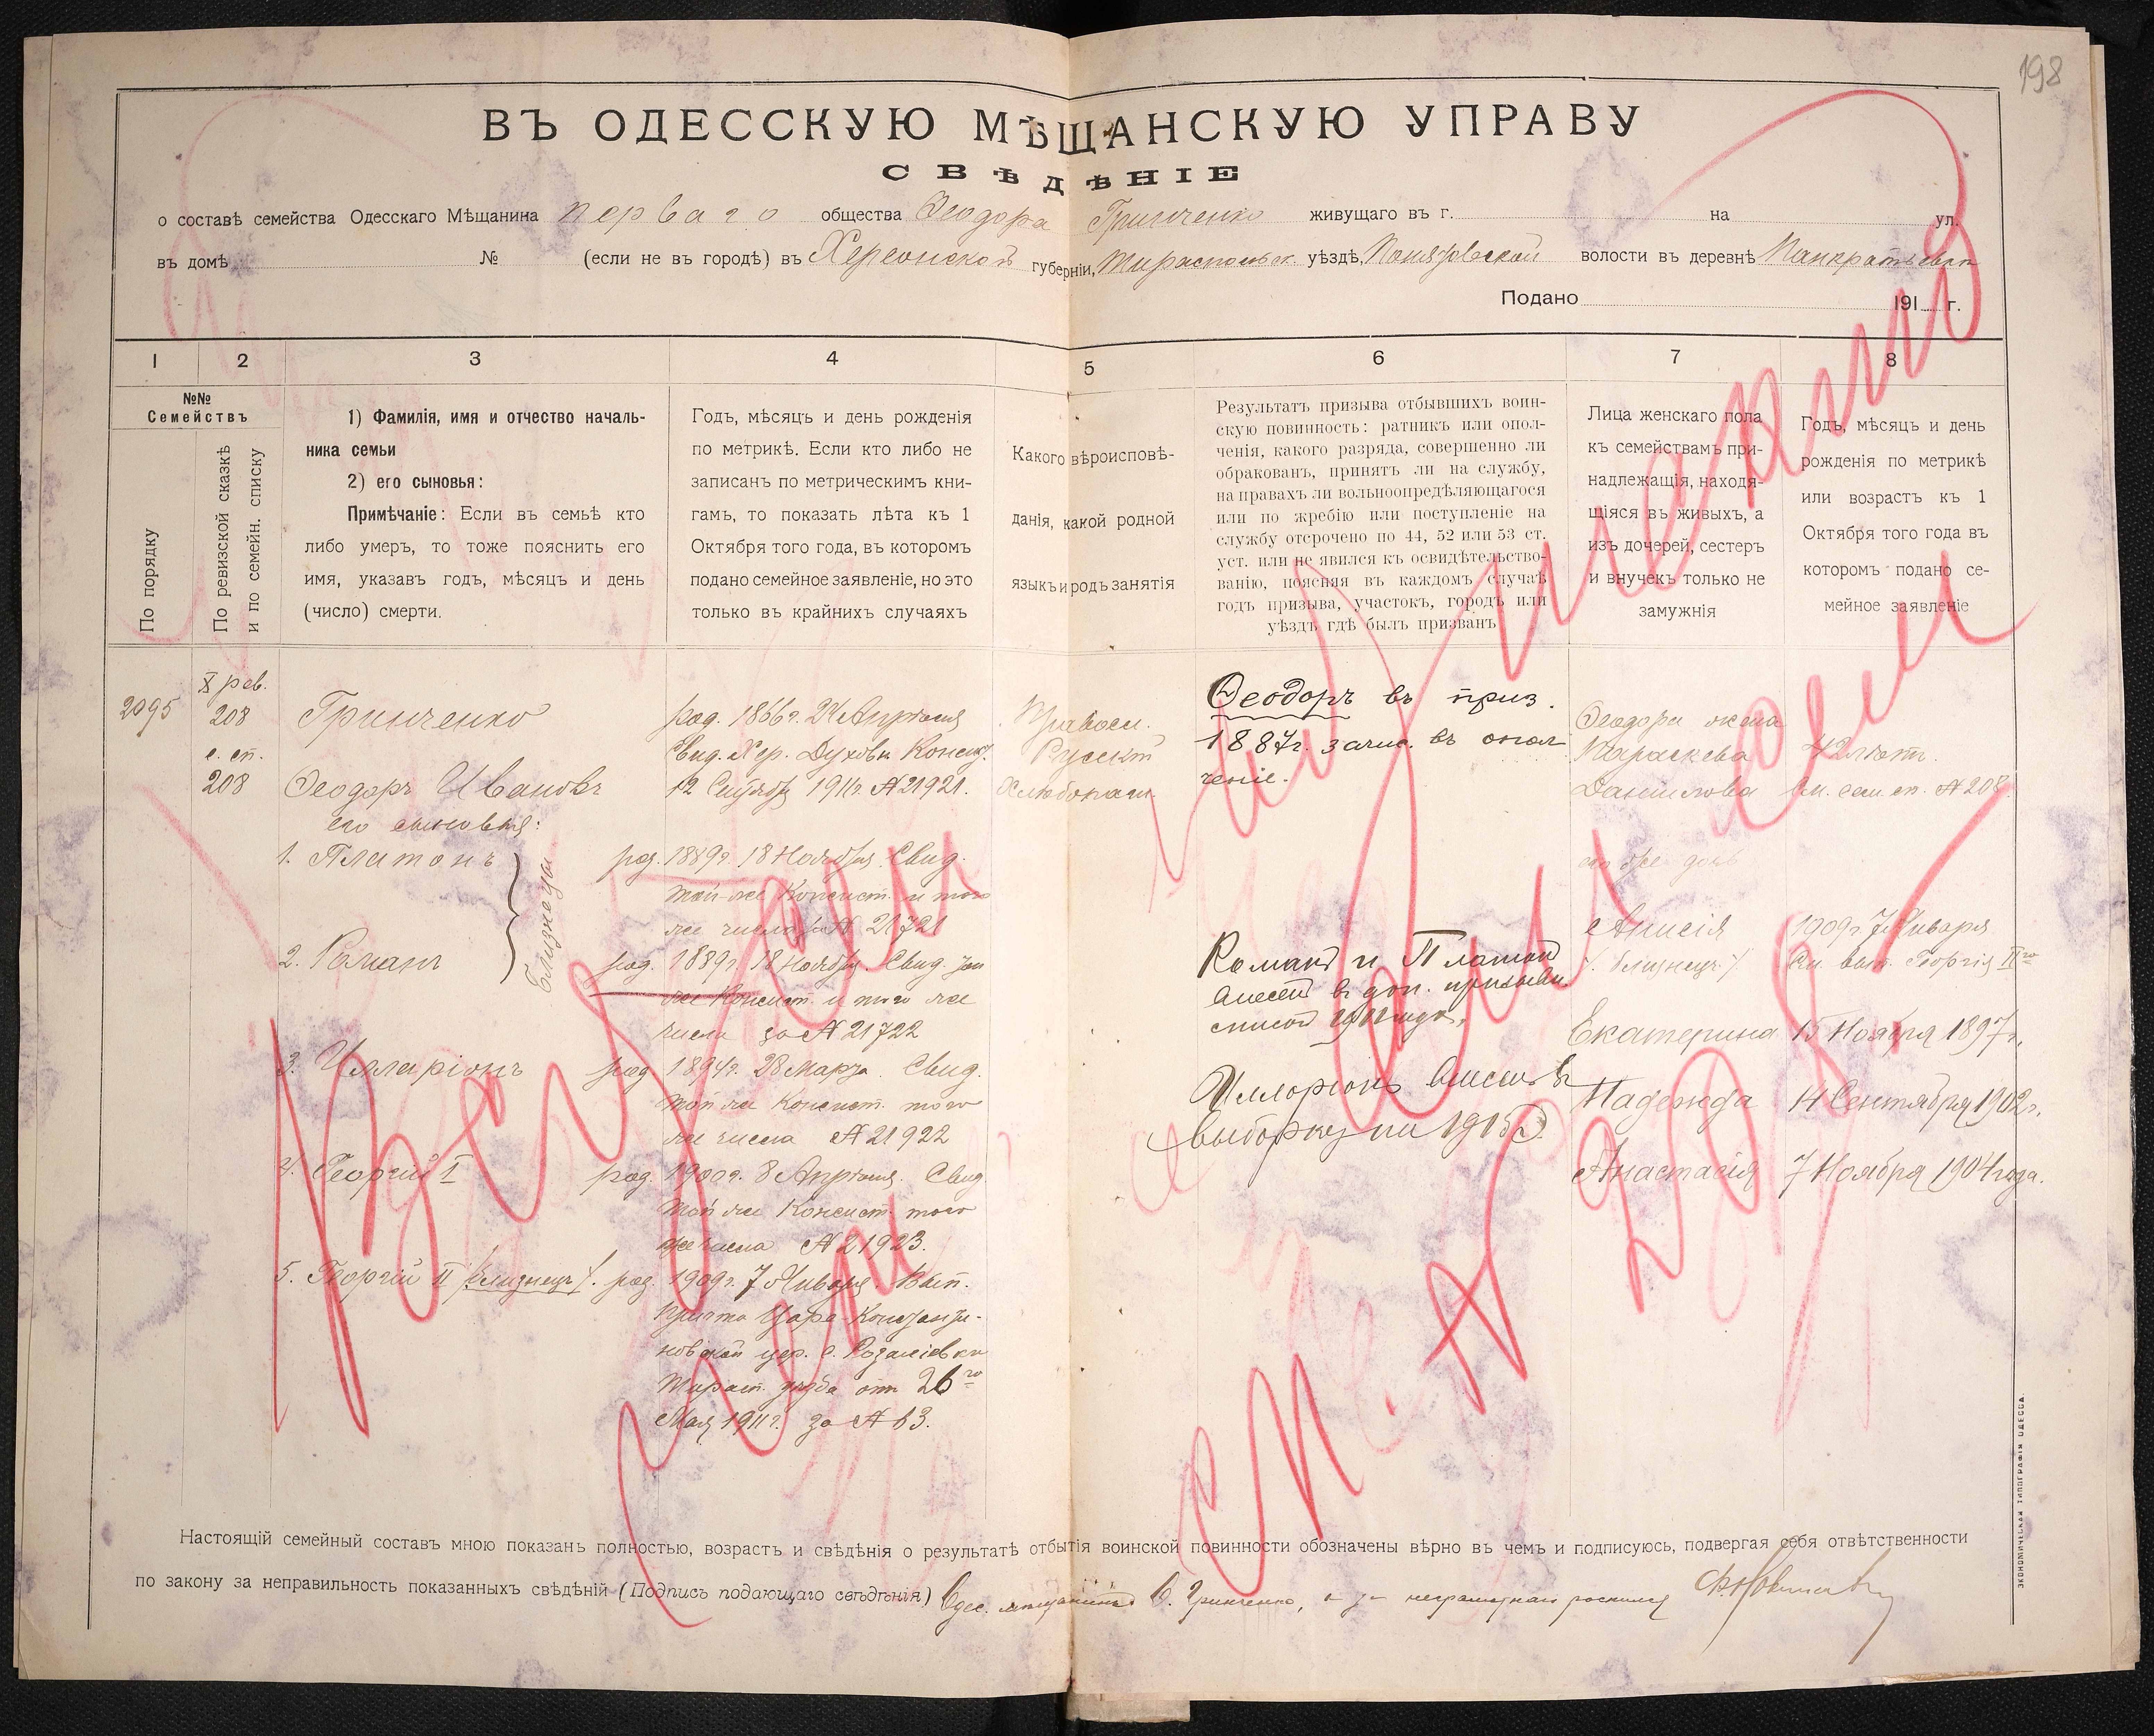 198
ВЪ ОДЕССКУЮ МѢЩАНСКУЮ УПРАВУ
СВѢДѢНІЕ
о составѣ семейства Одесскаго Мѣщанина перваго общества Ѳеодора Гринченко живущаго въ г. на ул.
въ домѣ № (если не въ городѣ) въ Херсонской губерніи, Тираспольск. уѣздѣ, Понятовской волости въ деревнѣ Панкратьевкѣ
Подано 191 г.
1 2 3 4 5 6 7 8
№№
Семействъ
По порядку
По ревизской сказкѣ
и по семейн. списку
1) Фамилія, имя и отчество началь-
ника семьи
2) его сыновья:
Примѣчаніе: Если въ семьѣ кто
либо умеръ, то тоже пояснить его
имя, указавъ годъ, мѣсяцъ и день
(число) смерти.
Годъ, мѣсяцъ и день рожденія
по метрикѣ. Если кто либо не
записанъ по метрическимъ кни-
гамъ, то показать лѣта къ 1
Октября того года, въ которомъ
подано семейное заявленіе, но это
только въ крайнихъ случаяхъ
Какого вѣроисповѣ-
данія, какой родной
языкъ и родъ занятія
Результатъ призыва отбывшихъ воин-
скую повинность: ратникъ или опол-
ченія, какого разряда, совершенно ли
обракованъ, принятъ ли на службу,
на правахъ ли вольноопредѣляющагося
или по жребію или поступленіе на
службу отсрочено по 44, 52 или 53 ст.
уст. или не явился къ освидѣтельство-
ванію, поясняя въ каждомъ случаѣ
годъ призыва, участокъ, городъ или
уѣздъ гдѣ былъ призванъ
Лица женскаго пола
къ семействамъ при-
надлежащія, находя-
щіяся въ живыхъ, а
изъ дочерей, сестеръ
и внучекъ только не
замужнія
Годъ, мѣсяцъ и день
рожденія по метрикѣ
или возрастъ къ 1
Октября того года въ
которомъ подано се-
мейное заявленіе
2095
X рев.
208
с. сп.
208
Гринченко
Ѳеодоръ Ивановъ
его сыновья:
1. Платонъ
2. Романъ
Близнецы
3. Илларіонъ
4. Георгій I
5. Георгій II /близнецъ/.
род. 1866 г. 24 Апрѣля
Свид. Хер. Духовн. Консист.
12 Сентября 1911 г. № 21921.
род. 1889 г. 18 Ноября. Свид.
той-же Консист. и того
же числа № 21721
род. 1889 г. 18 Ноября. Свид. той
же Консист. и того же
числа за № 21722
род. 1894 г. 28 Марта. Свид.
той же Консист. того
же числа № 21922
род. 1900 г. 8 Апрѣля. Свид.
той же Консист. того
же числа № 21923.
род. 1909 г. 7 Января. Вып.
причта Царе-Константи-
новской цер. с. Розаліевки
Тирасп. уѣзда отъ 26го
Мая 1911 г. за № 63.
Правосл.
Русскій
Хлѣбопаш.
Ѳеодоръ въ приз.
1887 г. зачис. въ опол
ченіе.
Романъ и Платонъ
внесены въ доп. призывн.
списокъ
Илларіонъ внесенъ въ
выборку на 1915 г.
Ѳеодора жена
Параскева
Данилова
42 лѣтъ.
см. сем. сп. № 208.
его же дочь
Анисія
/близнецъ/
1909 г. 7 Января
См. вып. Георгія IIго
Екатерина 15 Ноября 1897 г.
Надежда 14 Сентября 1902 г.
Анастасія 7 Ноября 1904 года.
см. № 208.
Настоящій семейный составъ мною показанъ полностью, возрастъ и свѣдѣнія о результатѣ отбытія воинской повинности обозначены вѣрно въ чемъ и подписуюсь, подвергая себя отвѣтственности
по закону за неправильность показанныхъ свѣдѣній (Подпись подающаго свѣдѣнія) Одес. мѣщанинъ Ѳ. Гринченко, а за неграмотнаго росписался
ЭКОНОМИЧЕСКАЯ ТИПОГРАФІЯ ОДЕССА.